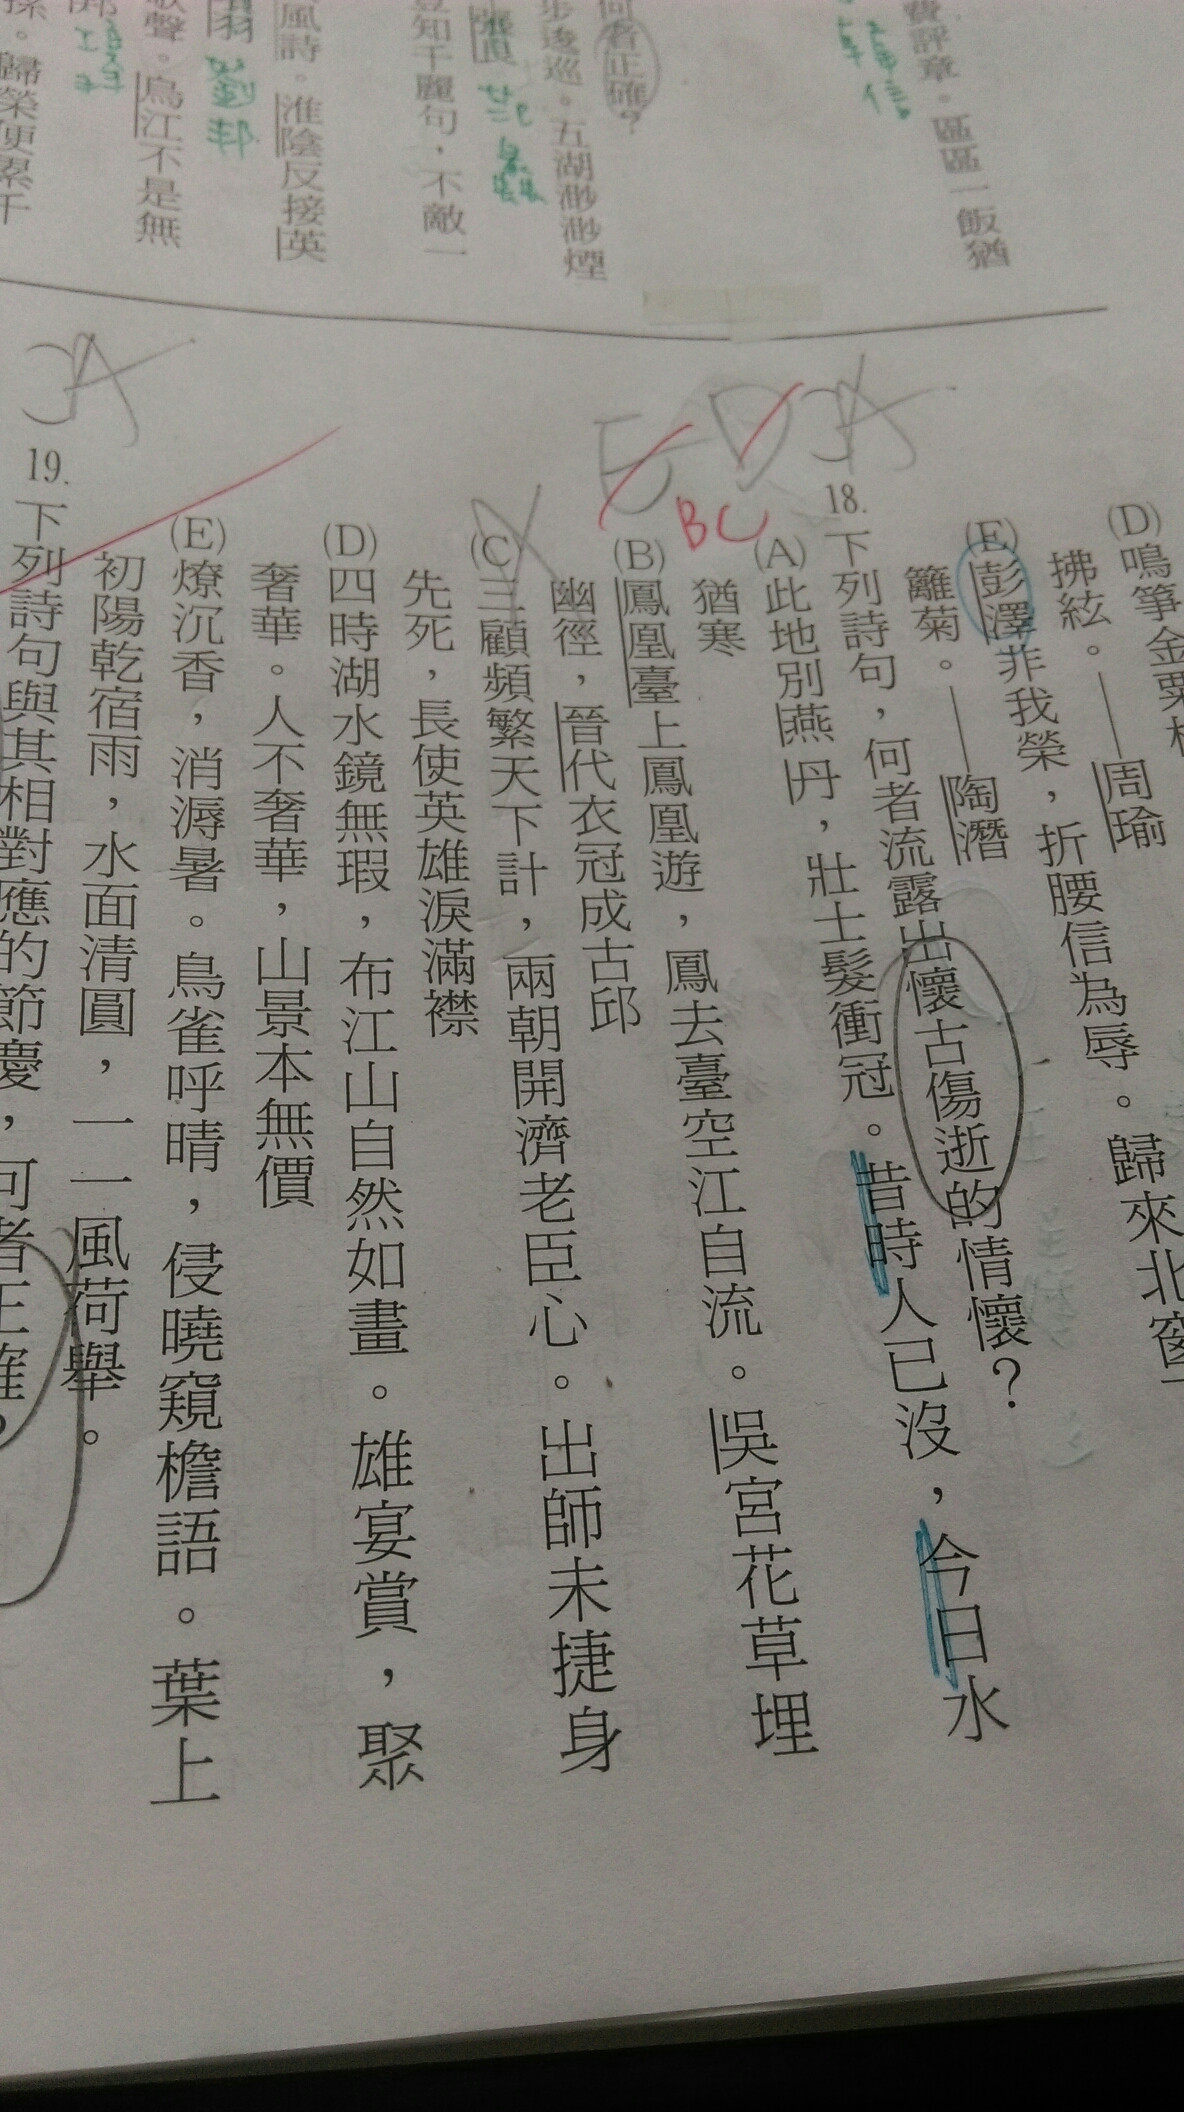 費評章。區區一飯猶
韓信
何者正確?
步逡巡。五湖渺渺煙
范蠡
豈知千麗句,不敵一
風詩。淮陰反接英
歌聲。烏江不是無
歸榮便累千
(D)鳴箏金粟柱
拂絃。——周瑜
(E)彭澤非我榮,折腰信為辱。歸來北窗下
籬菊。——陶潛
EDA
BC
18.下列詩句,何者流露出懷古傷逝的情懷?
(A)此地別燕丹,壯士髮衝冠。昔時人已沒,今日水
猶寒
(B)鳳凰臺上鳳凰遊,鳳去臺空江自流。吳宮花草埋
幽徑,晉代衣冠成古邱
(C)三顧頻繁天下計,兩朝開濟老臣心。出師未捷身
先死,長使英雄淚滿襟
(D)四時湖水鏡無瑕,布江山自然如畫。雄宴賞,聚
奢華。人不奢華,山景本無價
(E)燎沉香,消溽暑。鳥雀呼晴,侵曉窺檐語。葉上
初陽乾宿雨,水面清圓,一一風荷舉。
A
19.下列詩句與其相對應的節慶,何者正確?